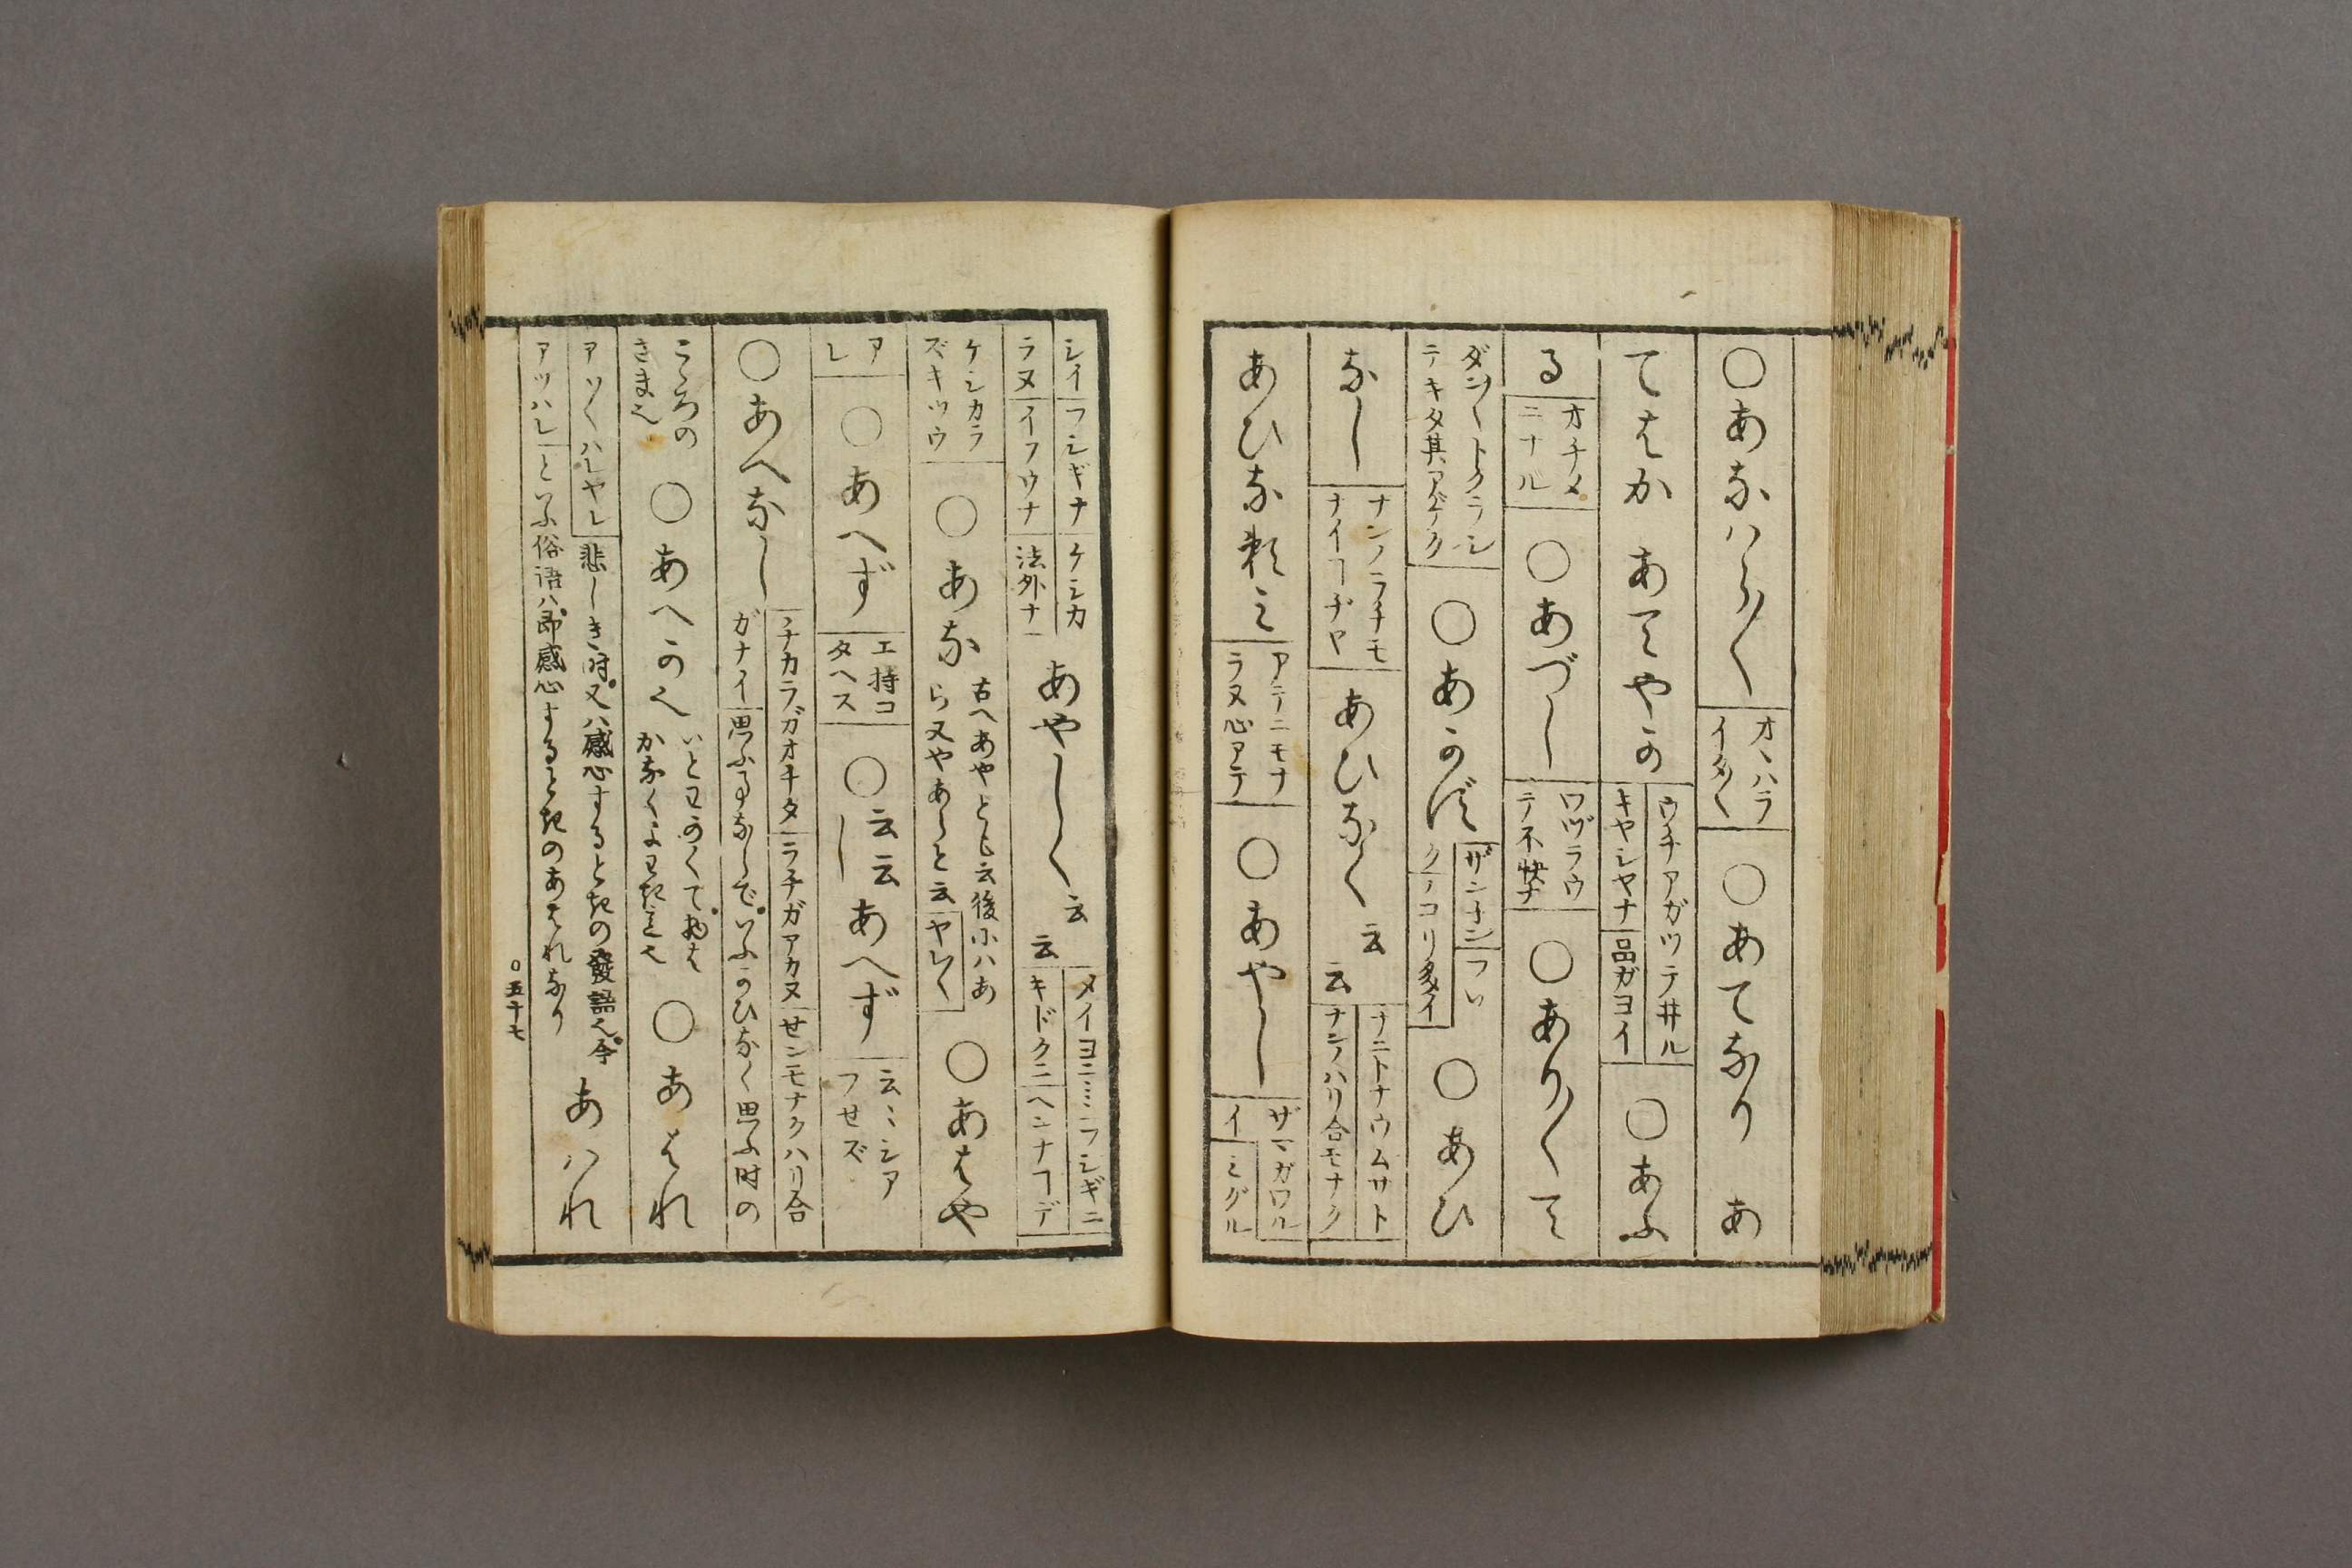 ○あなハら〳〵
オヽハラ
イタ〳〵
○あてなり　あ
てはか　あてやか
ウチアガツテ井ル
キヤシヤナ
品ガヨイ
○あふ
る
オチメ
ニナル
○あづし
ワヅラウ
テ不快ナ
○あり〳〵て
ダン〳〵トクラシ
テキタ其アゲク
○あかず
ザンネン
クノコリ多イ
○あひ
なし
ナンノラチモ
ナイヿヂヤ
あひなく云云
ナニトナウムサト
ナンノハリ合モナク
あひな頼み
アテニモナ
ラヌ心アテ
○あやし
ザマガワル
イ
ミグル
シイ
フシギナ
ケシカ
ラヌ
イフウナ
法外ナ
あやしく云云
メイヨニ
フシギニ
キドクニ
ヘンナヿデ
ケシカラ
ズキツウ
○あな
古へあやとも云後にハあ
ら又やあらと云
ヤレ〳〵
○あはや
ア
レ
○あへず
エ持コ
タヘス
○云云しあへず
云ミシア
フせズ
○あへなし
チカラガオチタ
ラチガアカヌ
せンモナクハリ合
ガナイ
思ふ事ならで。いふかひなく思ふ時の
こゝろの
さま也
○あへかに
○あはれ
アヽ〳〵ハレヤレ
悲しき時。又ハ感心するときの發語也。今
アツハレ
といふ俗語ハ。即感心するときのあはれなり
あハれ
○五十七